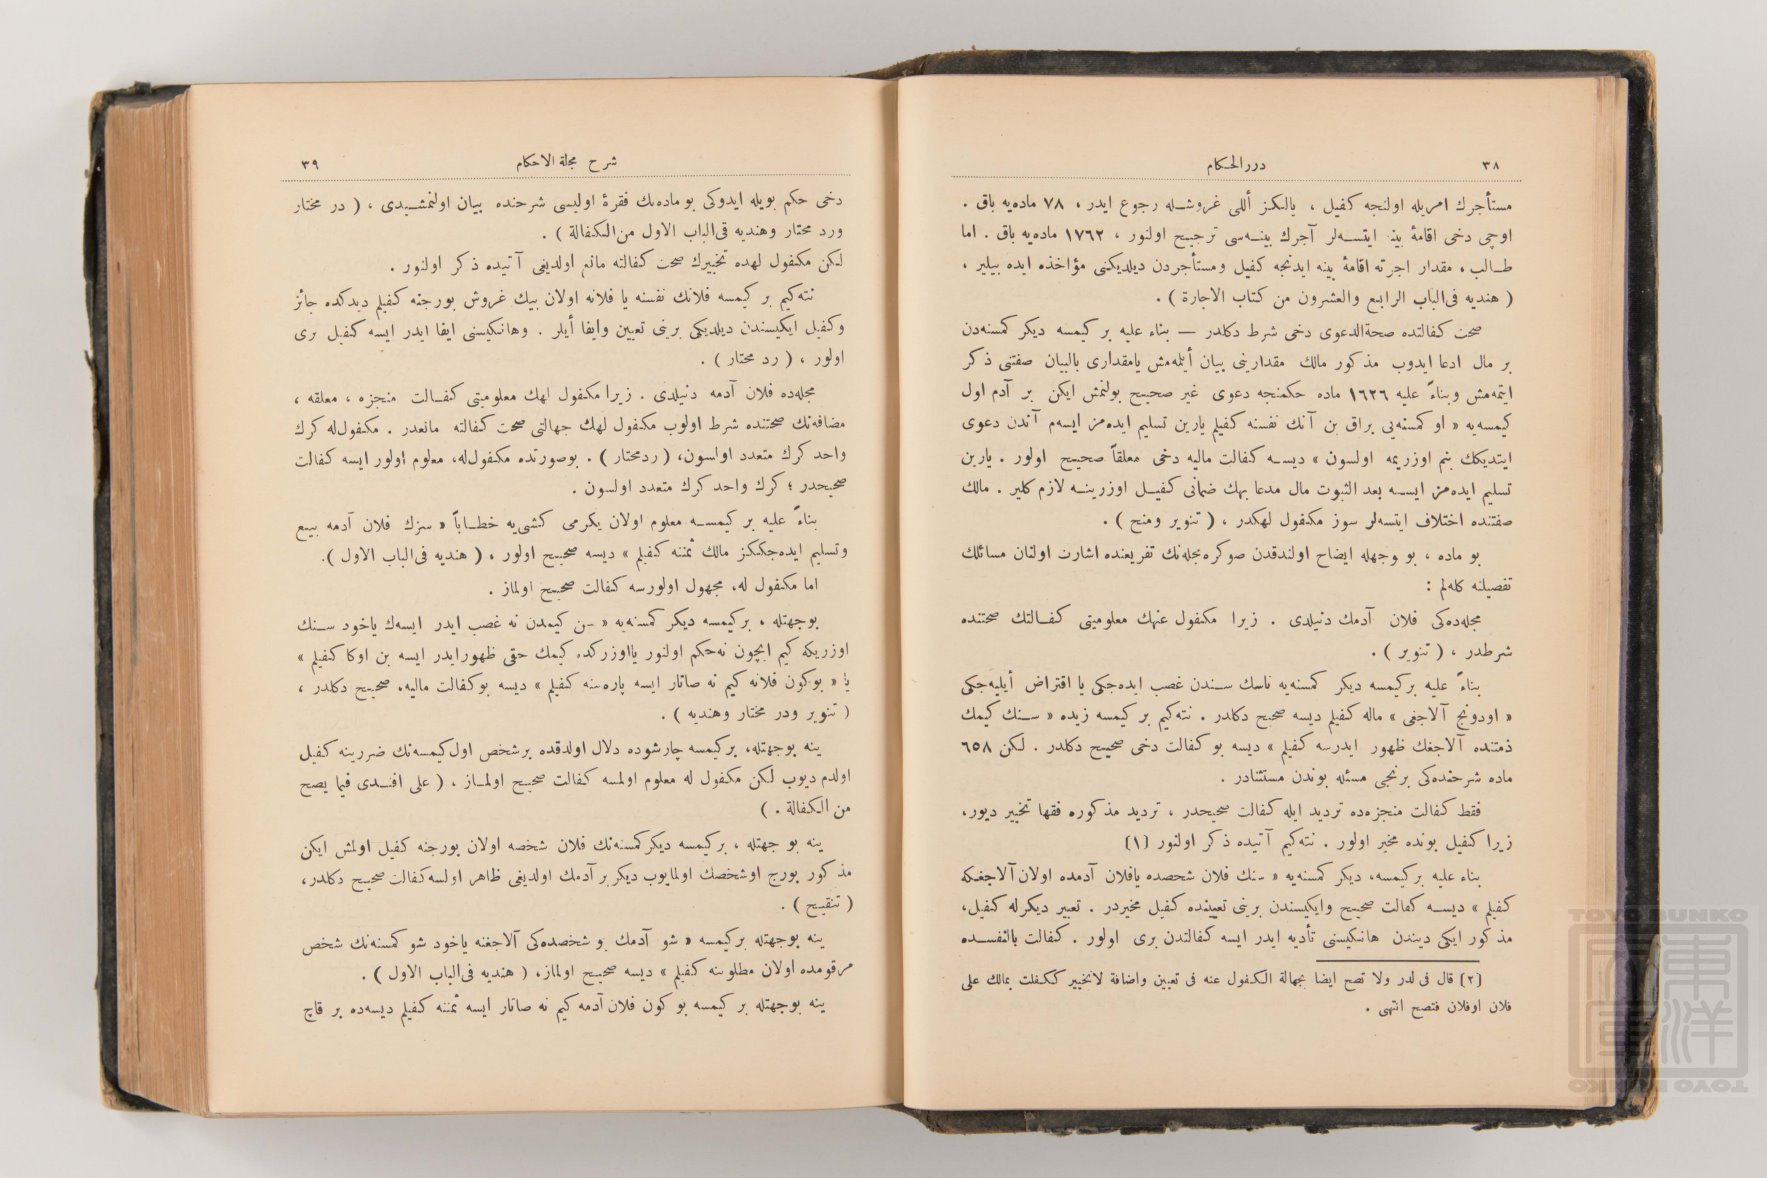 ٣٨
دررالحكام
مستأجرك امريله اولنجه كفيل ، يالكز أللى غروشله رجوع ايدر ، ٧٨ ماده‌يه باق .
اوچى دخى اقامۀ بينه ايتسه‌لر آجرك بينه‌سى ترجيح اولنور ، ١٧٦٢ ماده‌يه باق . اما
طالب ، مقدار اجرته اقامۀ بينه ايدنجه كفيل ومستأجردن ديلديكنى مؤاخذه ايده بيلير ،
( هنديه فى‌الباب الرابع والعشرون من كتاب الاجارة ) .
صحت كفالتده صحةالدعوى دخى شرط دكلدر — بناء عليه بر كيمسه ديكر كمسنه‌دن
بر مال ادعا ايدوب مذكور مالك مقدارينى بيان أيله‌مش يامقدارى بالبيان صفتنى ذكر
ايتمه‌مش وبناءً عليه ١٦٢٦ ماده حكمنجه دعوى غير صحيح بولنمش ايكن بر آدم اول
كيمسه‌يه « او كمسنه‌يى براق بن آنك نفسنه كفيلم يارين تسليم ايده‌مز ايسه‌م آندن دعوى
ايتديكك بنم اوزريمه اولسون » ديسه كفالت ماليه دخى معلقاً صحيح اولور . يارين
تسليم ايده‌مز ايسه بعد الثبوت مال مدعا بهك ضمانى كفيل اوزرينه لازم كلير . مالك
صفتنده اختلاف ايتسه‌لر سوز مكفول لهكدر ، ( تنوير ومنح ) .
بو ماده ، بو وجهله ايضاح اولندقدن صوكره مجله‌نك تفريعنده اشارت اولنان مسائلك
تفصيلنه كله‌لم :
مجله‌ده‌كى فلان آدمك دنيلدى . زيرا مكفول عنهك معلوميتى كفالتك صحتنده
شرطدر ، ( تنوير ) .
بناءً عليه بركيمسه ديكر كمسنه‌يه ناسك سندن غصب ايده‌جكى يا اقتراض أيليه‌جكى
« اودونج آلاجغى » ماله كفيلم ديسه صحيح دكلدر . نته‌كيم بر كيمسه زيده « سنك كيمك
ذمتنده آلاجغك ظهور ايدرسه كفيلم » ديسه بو كفالت دخى صحيح دكلدر . لكن ٦٥٨
ماده شرحنده‌كى برنجى مسئله بوندن مستثنادر .
فقط كفالت منجزه‌ده ترديد ايله كفالت صحيحدر ، ترديد مذكوره فقها تخيير ديور،
زيرا كفيل بونده مخير اولور . نته‌كيم آتيده ذكر اولنور (١)
بناء عليه بركيمسه، ديكر كمسنه‌يه « سنك فلان شخصده يافلان آدمده اولان آلاجغكه
كفيلم » ديسه كفالت صحيح وايكيسندن برينى تعيينده كفيل مخيردر . تعبير ديكرله كفيل،
مذكور ايكى ديندن هانكيسنى تأديه ايدر ايسه كفالتدن برى اولور . كفالت بالنفسده
(٢) قال فى لدر ولا تصح ايضا بجهالة المكفول عنه فى تعيين واضافة لاتخيير ككفلت بمالك على
فلان اوفلان فتصح انتهى .
شرح مجلة الاحكام
٣٩
دخى حكم بويله ايدوكى بو ماده‌نك فقرۀ اوليسى شرحنده بيان اولنمشيدى ، ( در مختار
ورد محتار وهنديه فى‌الباب الاول من‌الكفالة ) .
لكن مكفول لهده تخييرك صحت كفالته مانع اولديغى آتيده ذكر اولنور .
نته‌كيم بر كيمسه فلانك نفسنه يا فلانه اولان بيك غروش بورجنه كفيلم ديدكده جائز
وكفيل ايكيسندن ديلديكى برينى تعيين وايفا أيلر . وهانكيسنى ايفا ايدر ايسه كفيل برى
اولور ، ( رد محتار ) .
مجله‌ده فلان آدمه دنيلدى . زيرا مكفول لهك معلوميتى كفالت منجزه ، معلقه ،
مضافه‌نك صحتنده شرط اولوب مكفول لهك جهالتى صحت كفالته مانعدر . مكفول‌له كرك
واحد كرك متعدد اولسون، ( ردمحتار ) . بوصورتده مكفول‌له، معلوم اولور ايسه كفالت
صحيحدر ؛ كرك واحد كرك متعدد اولسون .
بناءً عليه بر كيمسه معلوم اولان يكرمى كشى‌يه خطاباً « سزك فلان آدمه بيع
وتسليم ايده‌جككز مالك ثمننه كفيلم » ديسه صحيح اولور ، ( هنديه فى‌الباب الاول ).
اما مكفول له، مجهول اولورسه كفالت صحيح اولماز .
بوجهتله ، بركيمسه ديكر كمسنه‌يه « سن كيمدن نه غصب ايدر ايسه‌ك ياخود سنك
اوزريكه كيم ايچون نه‌حكم اولنور يااوزركده كيمك حقى ظهورايدر ايسه بن اوكا كفيلم »
يا « بوكون فلانه كيم نه صاتار ايسه پاره‌سنه كفيلم » ديسه بوكفالت ماليه، صحيح دكلدر ،
( تنوير ودر مختار وهنديه ) .
ينه بوجهتله، بركيمسه چارشوده دلال اولدقده برشخص اول‌كيمسه‌نك ضررينه كفيل
اولدم ديوب لكن مكفول له معلوم اولمسه كفالت صحيح اولماز ، ( على افندى فيما يصح
من الكفالة . )
ينه بو جهتله ، بركيمسه ديكركمسنه‌نك فلان شخصه اولان بورجنه كفيل اولمش ايكن
مذكور بورج اوشخصك اولمايوب ديكربر آدمك اولديغى ظاهر اولسه‌كفالت صحيح دكلدر،
( تنقيح ) .
ينه بوجهتله بركيمسه « شو آدمك بو شخصده‌كى آلاجغنه ياخود شو كمسنه‌نك شخص
مرقومده اولان مطلوبنه كفيلم » ديسه صحيح اولماز، ( هنديه فى‌الباب الاول ) .
ينه بوجهتله بر كيمسه بو كون فلان آدمه كيم نه صاتار ايسه ثمننه كفيلم ديسه‌ده بر قاچ
TOYO BUNKO
東洋文庫
TOYO BUNKO